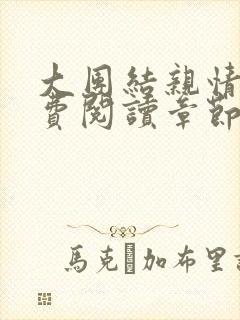 大团結親情
費閱讀章節
馬克·加布里